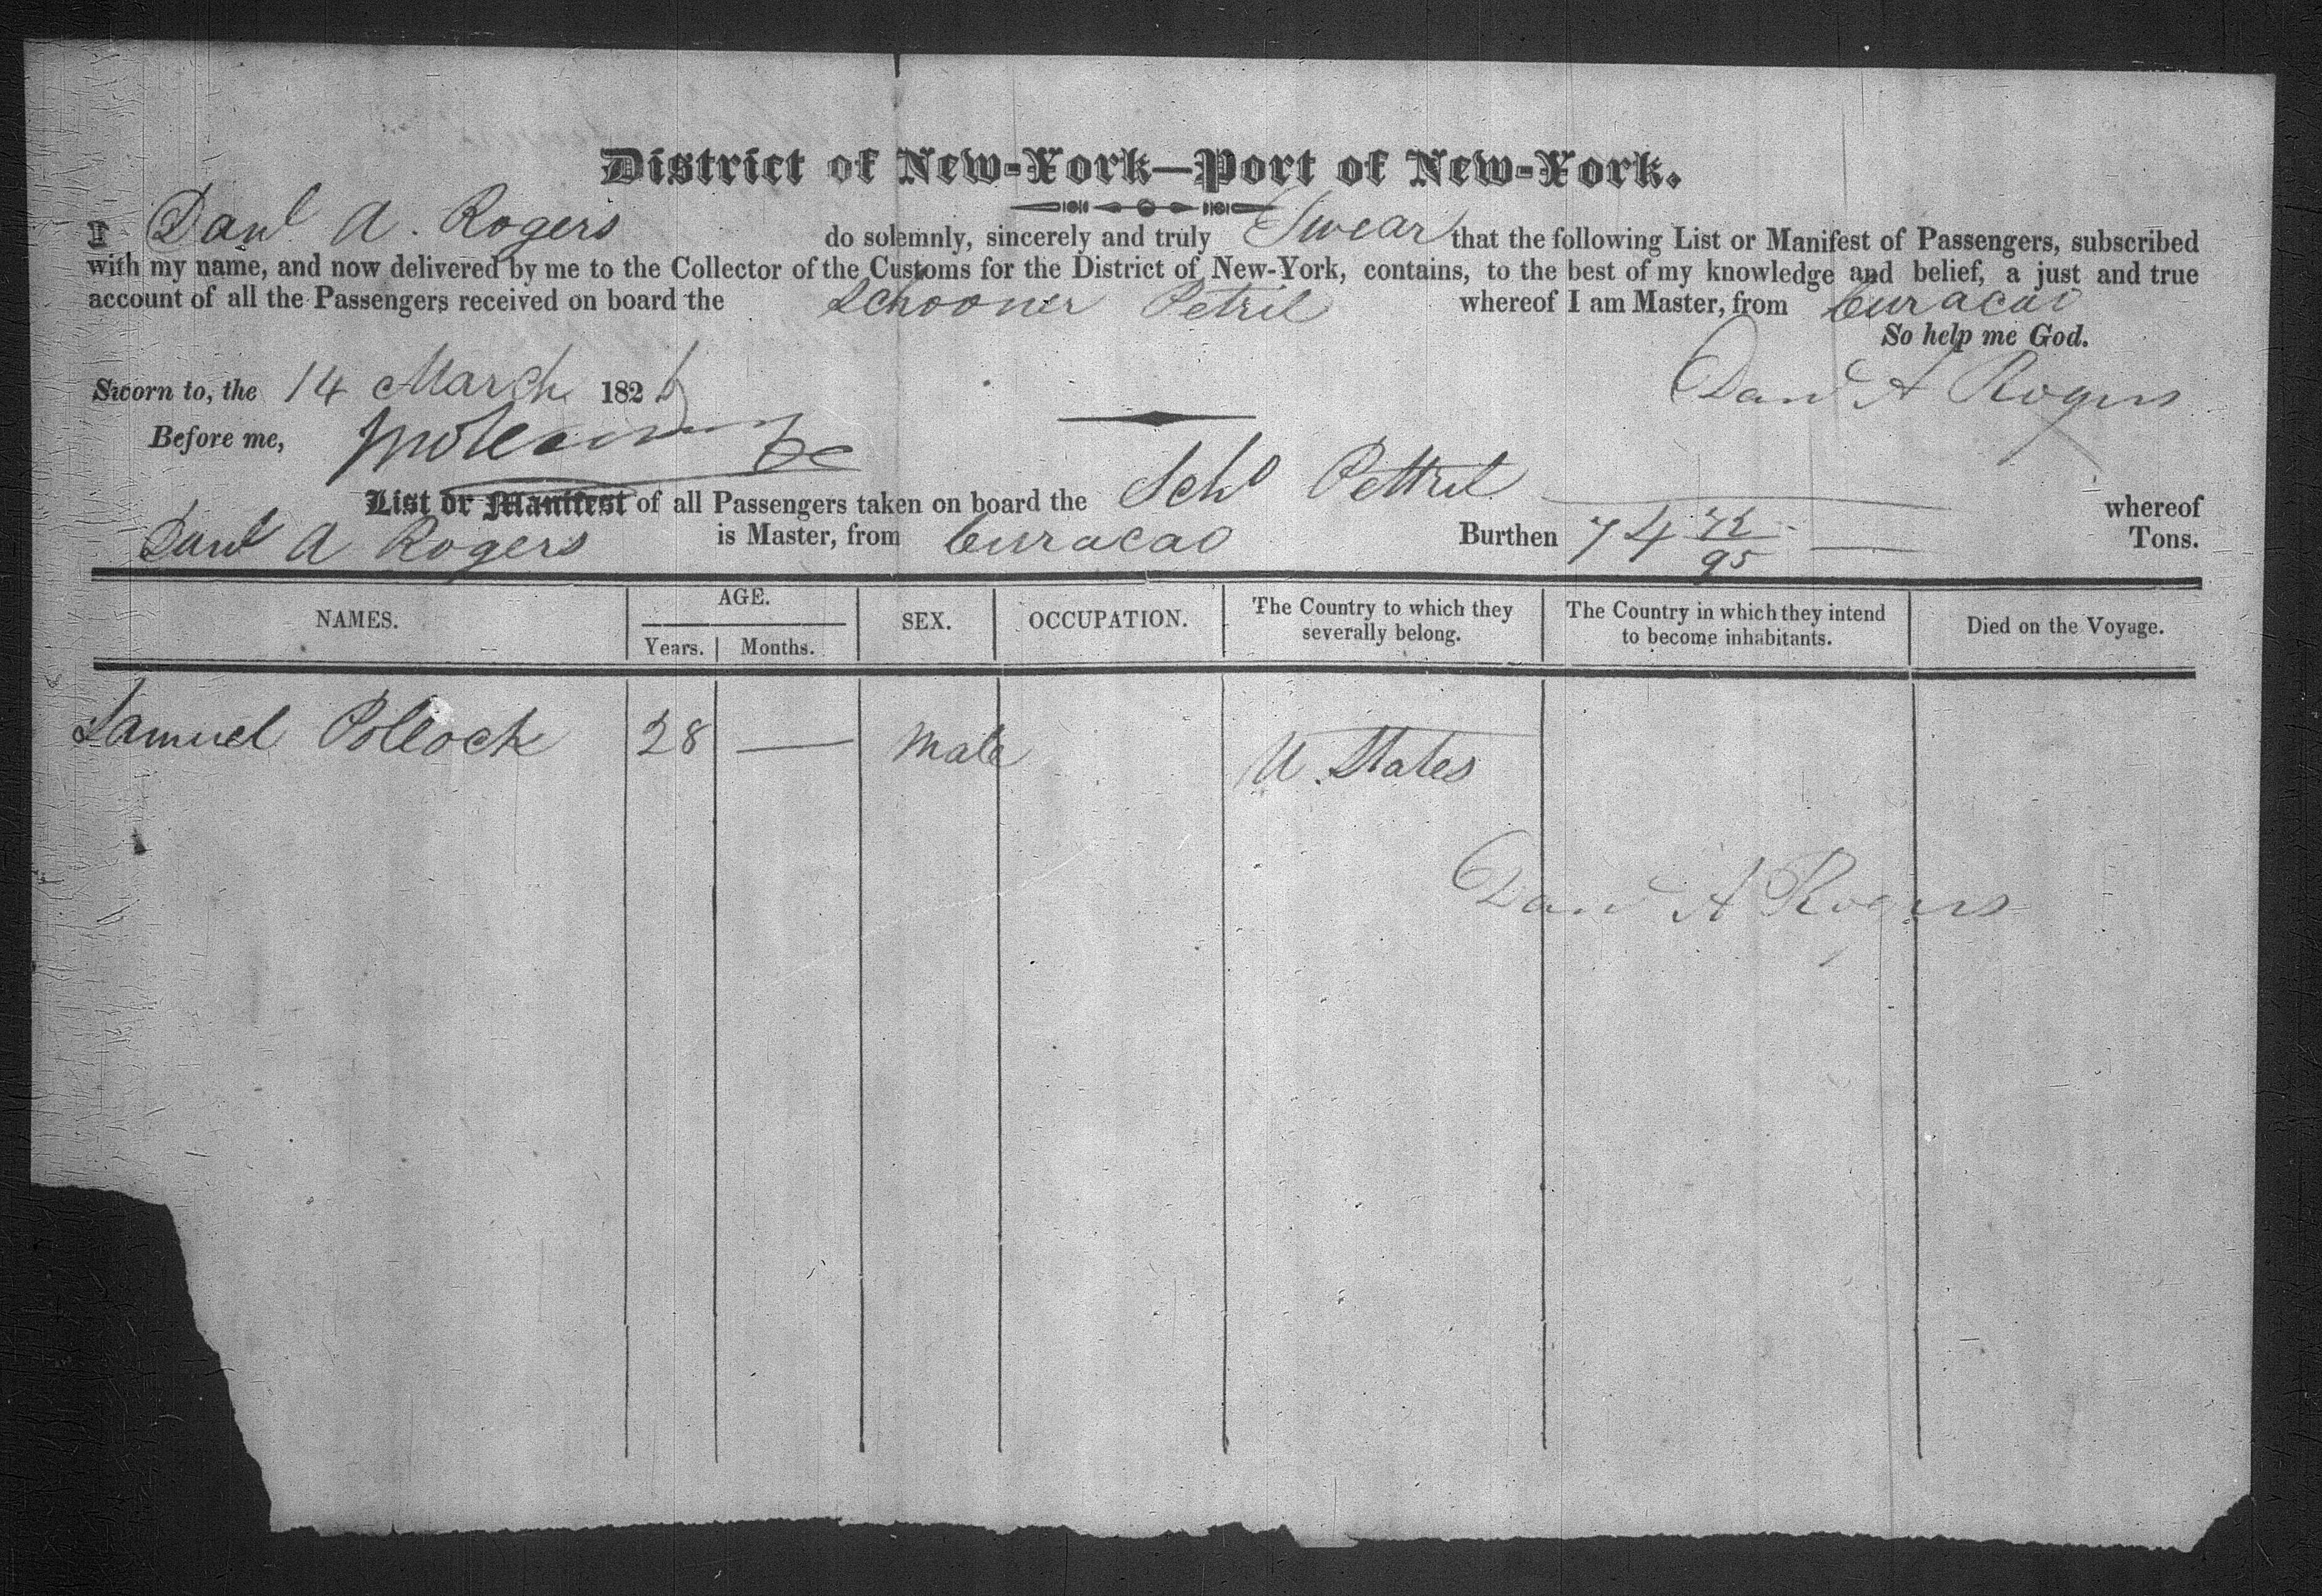 District of New-York—Port of New-York.
I Danl A. Rogers do solemnly, sincerely and truly Swear that the following List or Manifest of Passengers, subscribed
with my name, and now delivered by me to the Collector of the Customs for the District of New-York, contains, to the best of my knowledge and belief, a just and true
account of all the Passengers received on board the Schooner Petril whereof I am Master, from Curacao
So help me God.
Sworn to, the 14 March 1826
Danl A Rogers
Before me,
List or Manifest of all Passengers taken on board the Schr Pettril whereof
Danl A Rogers is Master, from Curacao Burthen 74 72/95 Tons.
NAMES. AGE. SEX. OCCUPATION. The Country to which they severally belong. The Country in which they intend to become inhabitants. Died on the Voyage.
Years. Months.
Samuel Pollock 28 — Male U. States
Danl A Rogers